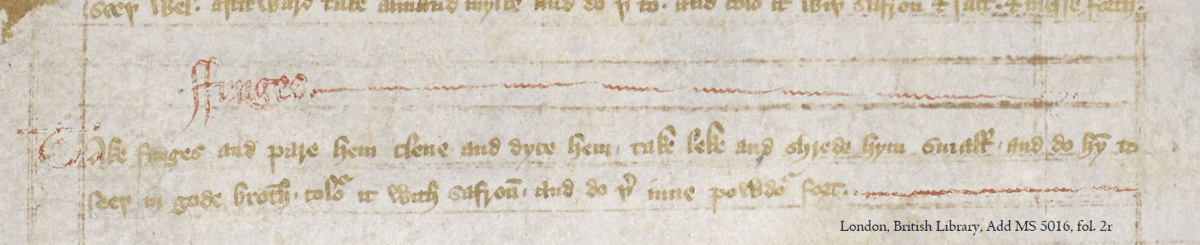 seeþ wel. aftirward take almand mylke and do þ to. and colo it wiþ safron & salt. & messe forth.
ffunges
Take funges and pare hem clene and dyce hem. take leke and shrede hym small. and do hȳ to
seeþ in gode broth. coloʳ it with safroū. and do þʳ inne powdoʳ fort.
London, British Library, Add MS 5016, fol. 2r